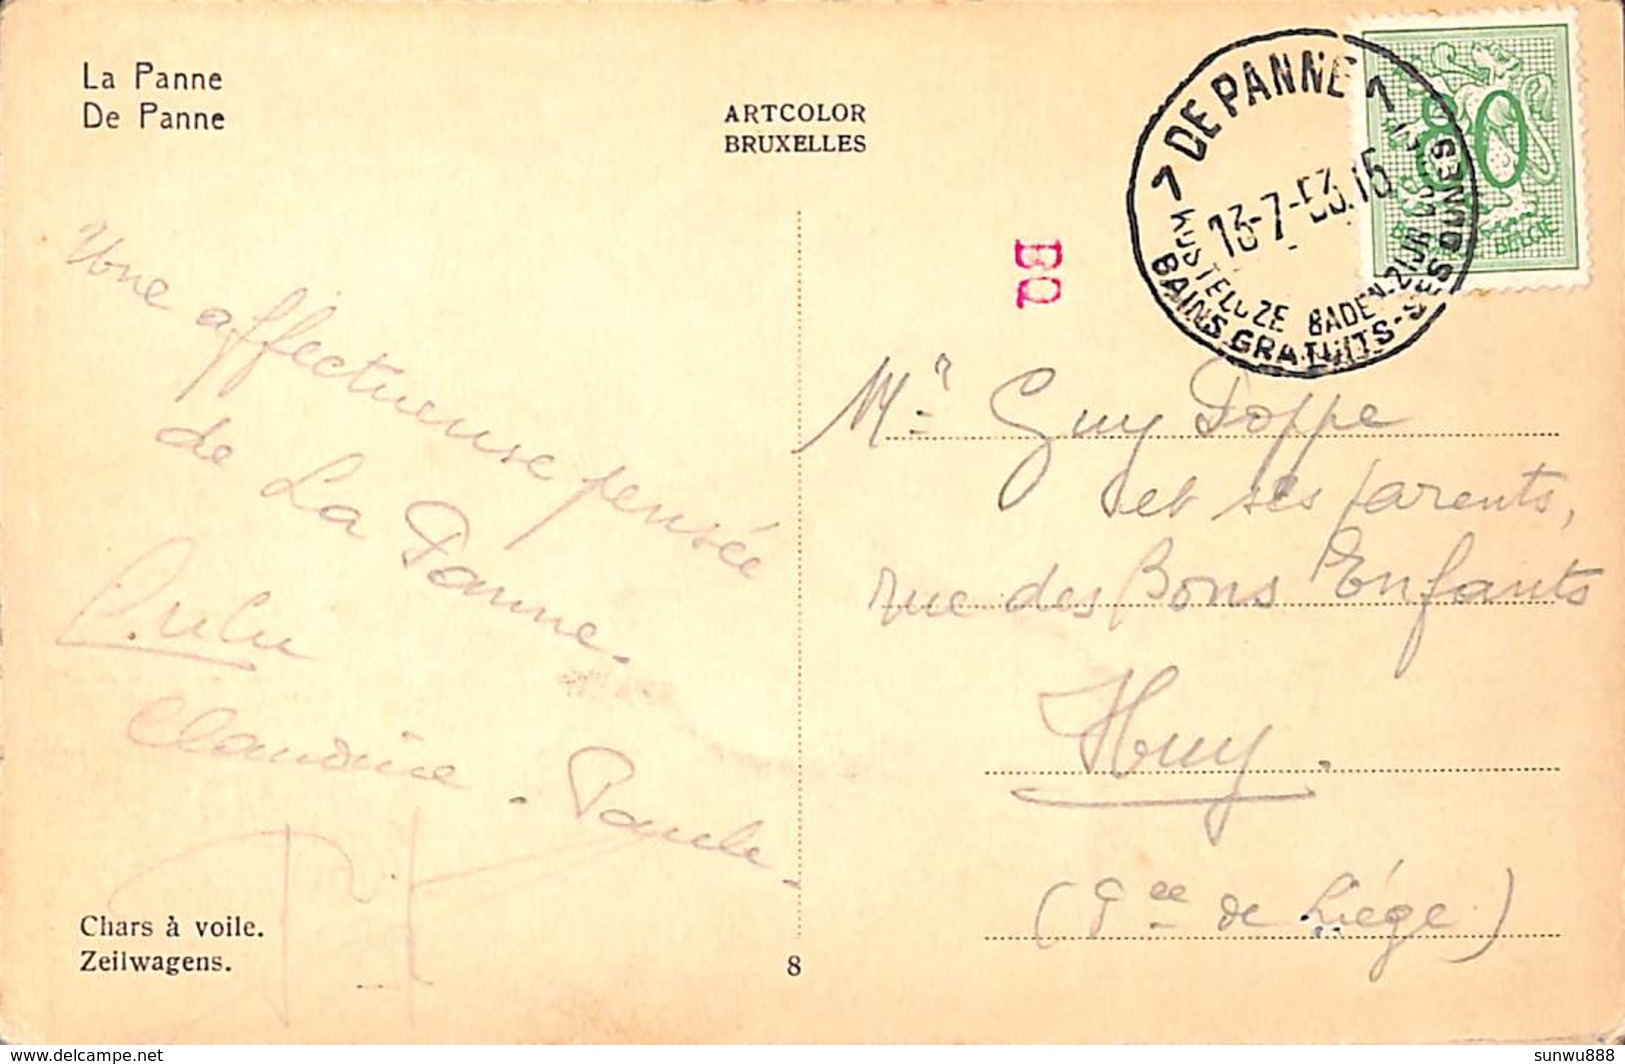 La Panne
De Panne
ARTCOLOR
BRUXELLES
DE PANNE 1
13-7-53.15
KOSTELOZE BADEN-ZIJN DUINEN
BAINS GRATUITS-SES DUNES
80
BELGIE
BQ
Une affectueuse pensée
de La Panne.
Lulu
Claudine. Paule.
Mr Guy Doppe
et ses parents,
rue des Bons Enfants
Huy.
(Pce de Liége)
Chars à voile.
Zeilwagens.
8
delcampe.net
sunwu888